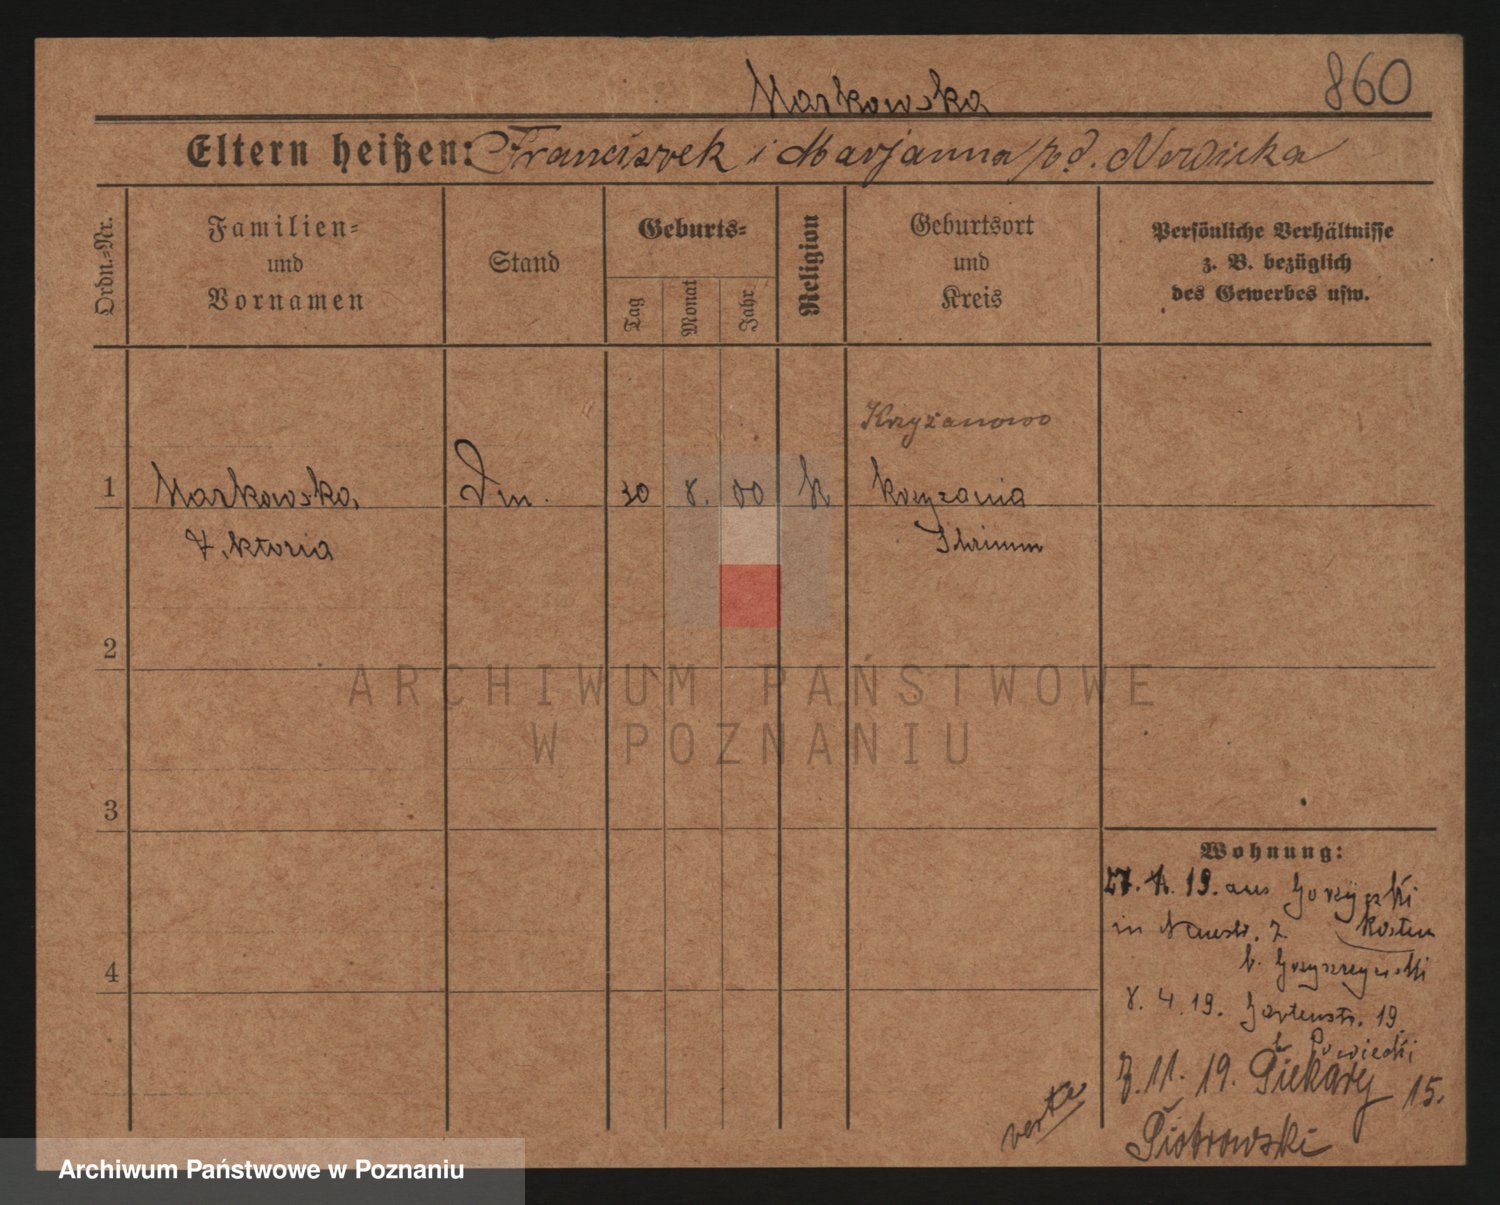 Markowska
860
Eltern heißen: Franciszek i Marjanna pd. Nowicka
Ordn.-Nr.
Familien-
und
Vornamen
Stand
Geburts-
Tag
Monat
Jahr
Religion
Geburtsort
und
Kreis
Persönliche Verhältnisse
z. B. bezüglich
des Gewerbes usw.
Krzyżanowo
1 Markowska Dm. 30 8. 00 K
Wiktoria
Schrimm
2
ARCHIWUM PAŃSTWOWE
W POZNANIU
3
4
Wohnung:
19. aus
in Neustr. 2 Kosten
b.
8. 4. 19. Gartenstr. 19.
b.
11. 19. Piekary 15.
Piotrowski
verte
Archiwum Państwowe w Poznaniu